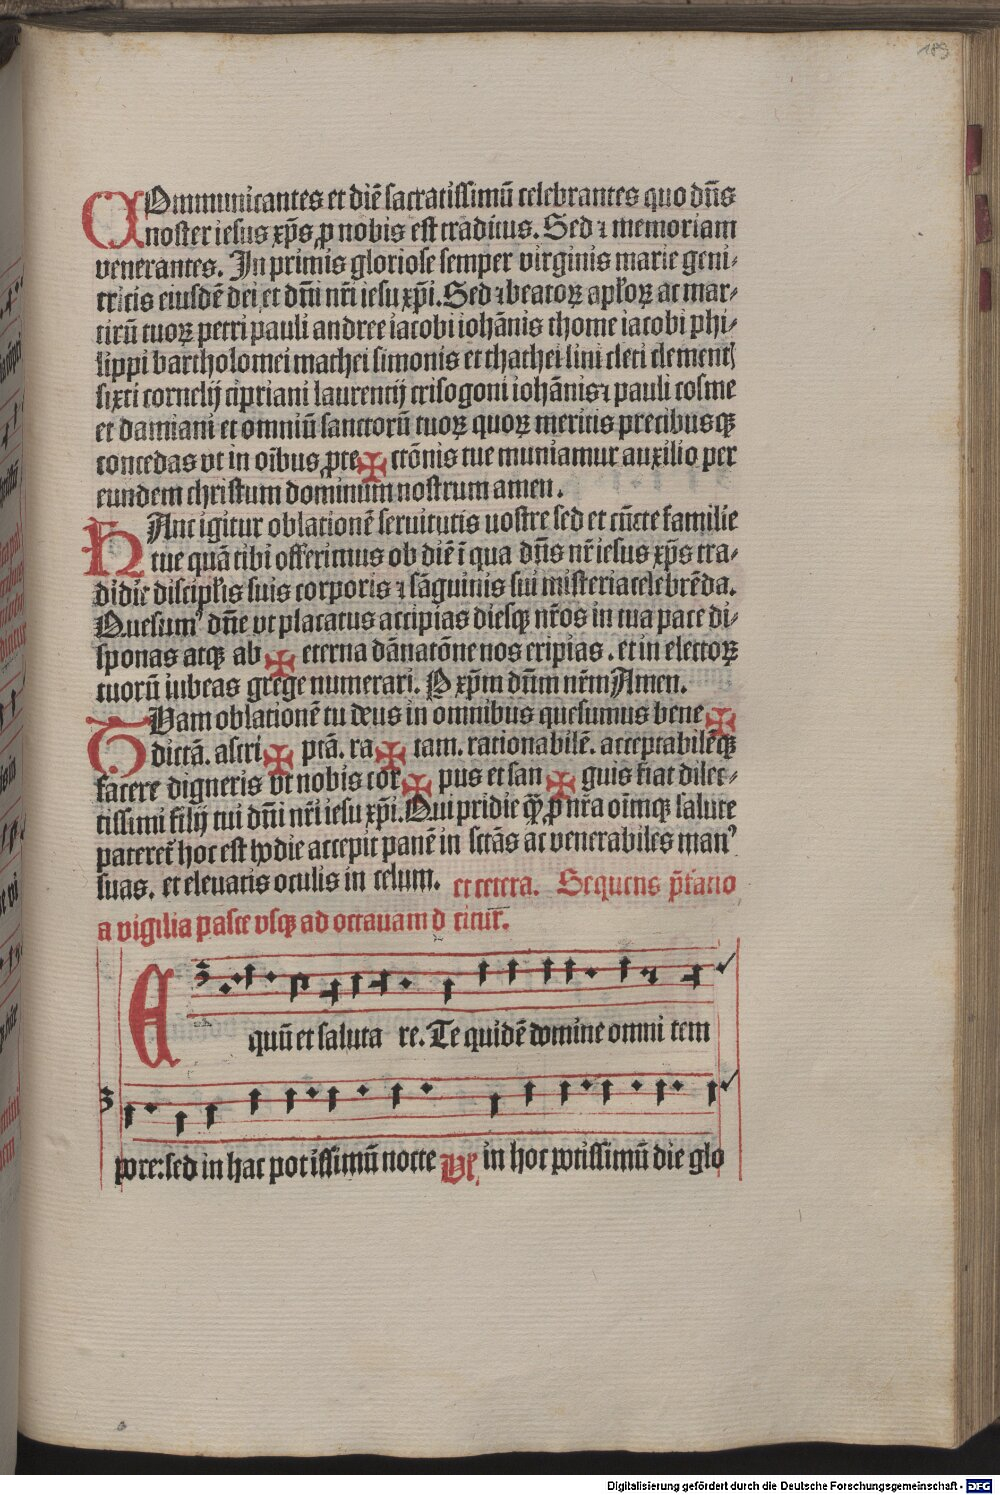 189
COmmunicantes et diē sacratissimū celebrantes quo dn̄s
noster iesus xp̄s ꝓ nobis est traditus. Sed ⁊ memoriam
venerantes. In primis gloriose semper virginis marie geni⸗
tricis eiusdē dei et dn̄i nr̄i iesu xp̄i. Sed ⁊ beatoꝝ apl̄oꝝ ac mar⸗
tirū tuoꝝ petri pauli andree iacobi iohānis thome iacobi phi⸗
lippi bartholomei mathei simonis et thathei lini cleti clementꝭ
sixti cornelij cipriani laurencij crisogoni iohānis ⁊ pauli cosme
et damiani et omniū sanctorū tuoꝝ quoꝝ meritis precibusqꝫ
concedas vt in oībus ꝓte ✠ ctōnis tue muniamur auxilio per
eundem christum dominum nostrum amen.
HAnc igitur oblationē seruitutis nostre sed et cūcte familie
tue quā tibi offerimus ob diē ī qua dn̄s nr̄ iesus xp̄s tra⸗
didit discipl̄is suis corporis ⁊ sāguinis sui misteria celebrēda.
Quesumꝰ dn̄e vt placatus accipias diesqꝫ nr̄os in tua pace di⸗
sponas atqꝫ ab ✠ eterna dānatōne nos eripias. et in electoꝝ
tuorū iubeas grege numerari. P xp̄m dn̄m nr̄m Amen.
QUam oblationē tu deus in omnibus quesumus bene ✠
dictā. ascri ✠ ptā. ra ✠ tam. rationabilē. acceptabilēqꝫ
facere digneris vt nobis cor ✠ pus et san ✠ guis fiat dilec⸗
tissimi filij tui dn̄i nr̄i iesu xp̄i. Qui pridie qꝫ̄ ꝓ nr̄a oīmqꝫ salute
pateret᷑ hoc est hodie accepit panē in sctās ac venerabiles manꝰ
suas. et eleuatis oculis in celum. et cetera. Sequens p̄fatio
a vigilia pasce vsqꝫ ad octauam d citur̄.
Equū et saluta re. Te quidē domine omni tem
pore: sed in hac potissimū nocte Vꝉ in hoc potissimū die glo
Digitalisierung gefördert durch die Deutsche Forschungsgemeinschaft - DFG